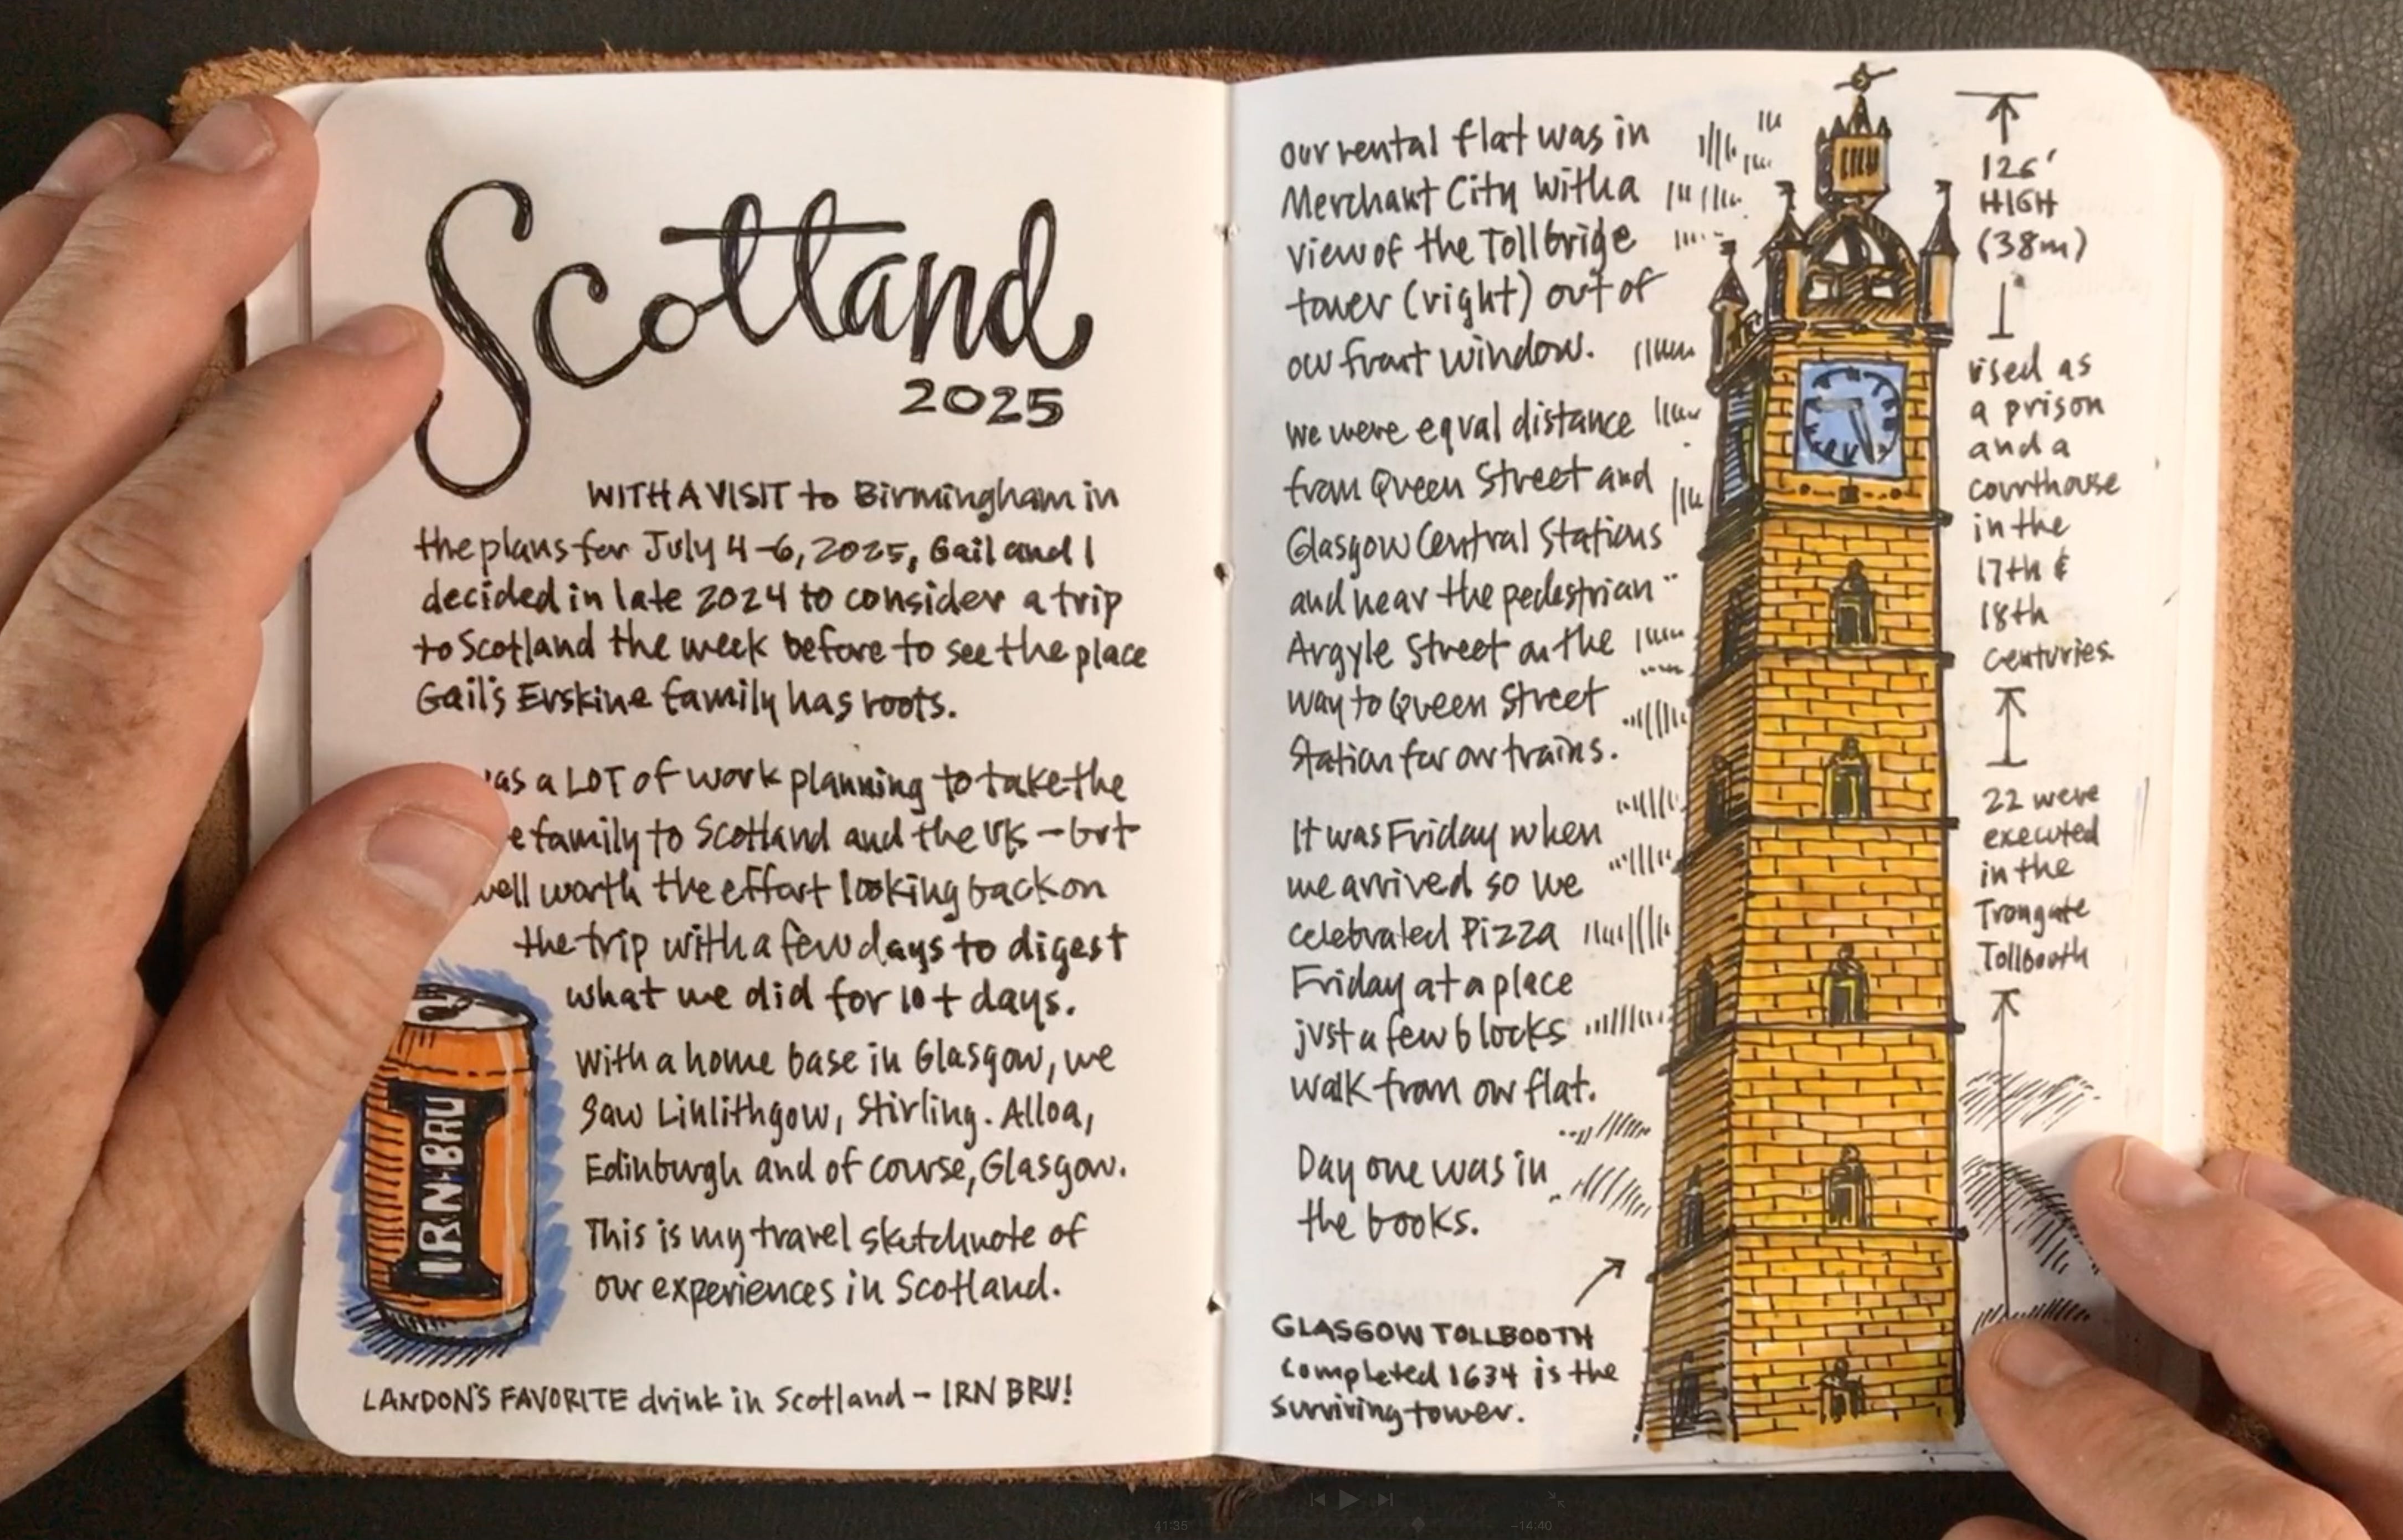 Scotland
2025
WITH A VISIT to Birmingham in
the plans for July 4-6, 2025, Gail and I
decided in late 2024 to consider a trip
to Scotland the week before to see the place
Gail's Erskine family has roots.
was a LOT of work planning to take the
family to Scotland and the UK – but
well worth the effort looking back on
the trip with a few days to digest
what we did for 10+ days.
With a home base in Glasgow, we
Saw Linlithgow, Stirling. Alloa,
Edinburgh and of course, Glasgow.
This is my travel sketchnote of
our experiences in Scotland.
IRN-BRU
LANDON'S FAVORITE drink in Scotland – IRN BRU!
our rental flat was in
Merchant City with a
view of the Tollbrige
tower (right) out of
our front window.
We were equal distance
from Queen Street and
Glasgow Central Stations
and near the pedestrian
Argyle Street on the
way to Queen Street
Station for our trains.
It was Friday when
we arrived so we
celebrated Pizza
Friday at a place
just a few blocks
walk from our flat.
Day one was in
the books.
GLASGOW TOLLBOOTH
completed 1634 is the
surviving tower.
126'
HIGH
(38m)
Used as
a prison
and a
courthouse
in the
17th &
18th
Centuries.
22 were
executed
in the
Trongate
Tollbooth
41:35
-14:40